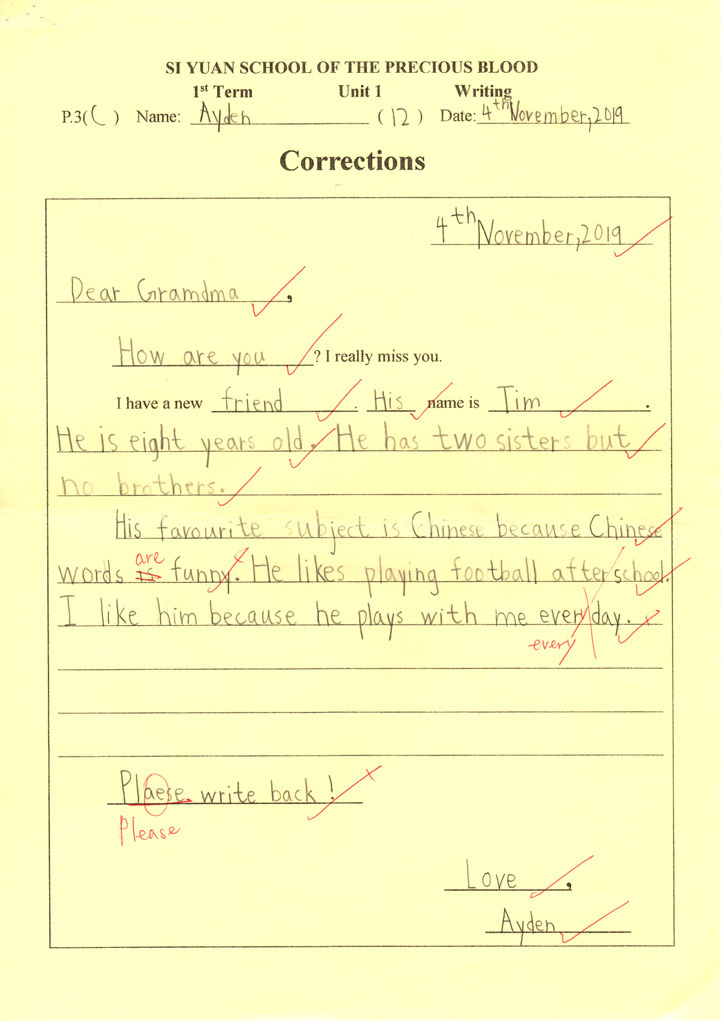 SI YUAN SCHOOL OF THE PRECIOUS BLOOD
1st Term Unit 1 Writing
P.3(C) Name: Ayden (12) Date: 4th November, 2019
Corrections
4th November, 2019
Dear Gramdma,
How are you ? I really miss you.
I have a new friend. His name is Tim.
He is eight years old. He has two sisters but
no brothers.
His favourite subject is Chinese because Chinese
are
words is funny. He likes playing football after school.
I like him because he plays with me every day.
every
Plaese write back!
Please
Love,
Ayden